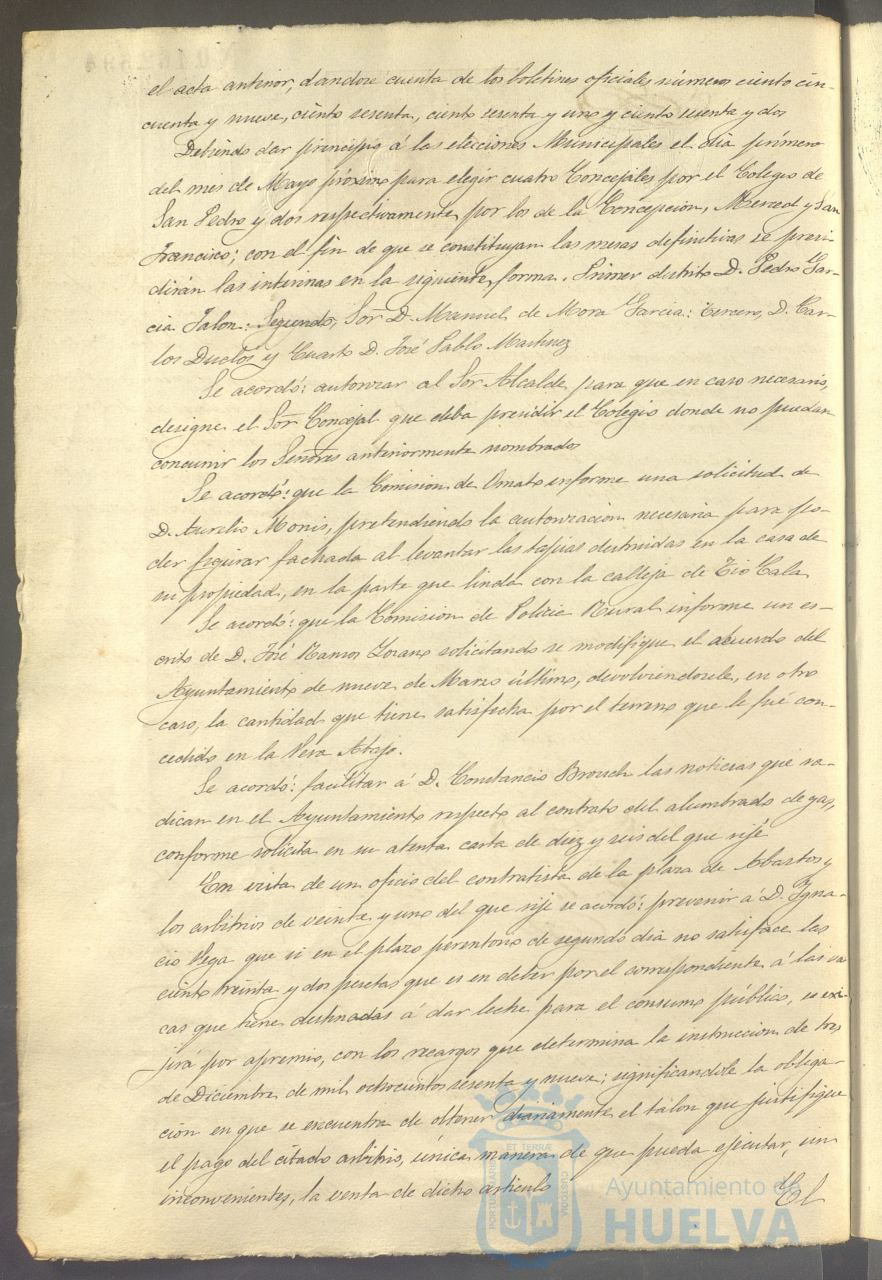 el acta anterior, dandose cuenta de los boletines oficiales números ciento cin-
cuenta y nueve, ciento sesenta, ciento sesenta y uno y ciento sesenta y dos
Debiendo dar principio á las elecciones Municipales el dia primero
del mes de Mayo próximo para elegir cuatro Concejales por el Colegio de
San Pedro y dos respectivamente por los de la Concepcion, Merced y San
Francisco; con el fin de que se constituyan las mesas definitivas se presi-
dirán las interinas en la siguiente forma. Primer distrito D. Pedro Gar-
cia Jalon: Segundo, Sor D. Manuel de Mora Garcia: tercero, D. Car-
los Duclós y Cuarto D. José Pablo Martinez
Se acordó: autorizar al Sor Alcalde para que en caso necesario,
designe el Sor Concejal que deba presidir el Colegio donde no puedan
concurrir los Señores anteriormente nombrados
Se acordó: que la Comision de Ornato informe una solicitud de
D. Aurelio Monis, pretendiendo la autorizacion necesaria para po-
der figurar fachada al levantar las tapias destruidas en la casa de
su propiedad, en la parte que linda con la calleja de Tio Cala
Se acordó: que la Comision de Policia Rural informe un es-
crito de D. José Ramos Lozano solicitando se modifique el acuerdo del
Ayuntamiento de nueve de Marzo último, devolviendosele, en otro
caso, la cantidad que tiene satisfecha por el terreno que le fué con-
cedido en la Vera Abajo.
Se acordó: facilitar á D. Constancio Brouch las noticias que ra-
dican en el Ayuntamiento respecto al contrato del alumbrado de gas,
conforme solicita en su atenta carta de diez y seis del que rije
En vista de un oficio del contratista de la plaza de Abastos y
los arbitrios de veinte y uno del que rije se acordó: prevenir á D. Igna-
cio Vega que si en el plazo perentorio de segundo dia no satisface las
ciento treinta y dos pesetas que es en deber por el correspondiente á las va
cas que tiene destinadas á dar leche para el consumo público, se exi-
jirá por apremio, con los recargos que determina la instruccion de tres
de Diciembre de mil ochocientos sesenta y nueve; significandole la obliga-
cion en que se encuentra de obtener diariamente el talon que justifique
el pago del citado arbitrio, única manera de que pueda ejecutar, sin
inconvenientes, la venta de dicho articulo
El
Ayuntamiento de
HUELVA
PORTUS MARIS
ET TERRÆ
CUSTODIA